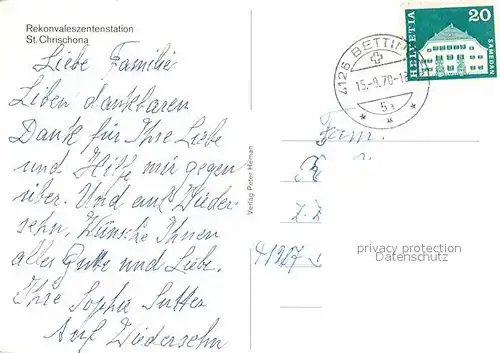 Rekonvaleszentenstation
St. Chrischona
Liebe Familie
Liben dankbaren
Dank für Ihre Liebe
und Hilfe mir gegen
über. Und auf Wieder-
sehn. Wünsche Ihnen
alles Gute und Liebe.
Ihre Sophie Sutter
Auf Wiedersehn
Verlag Peter Heman
4126 BETTIN
15.-9.70-1
5a
HELVETIA
20
SAMEDAN
Fam.
Z.Z
41207
privacy protection
Datenschutz